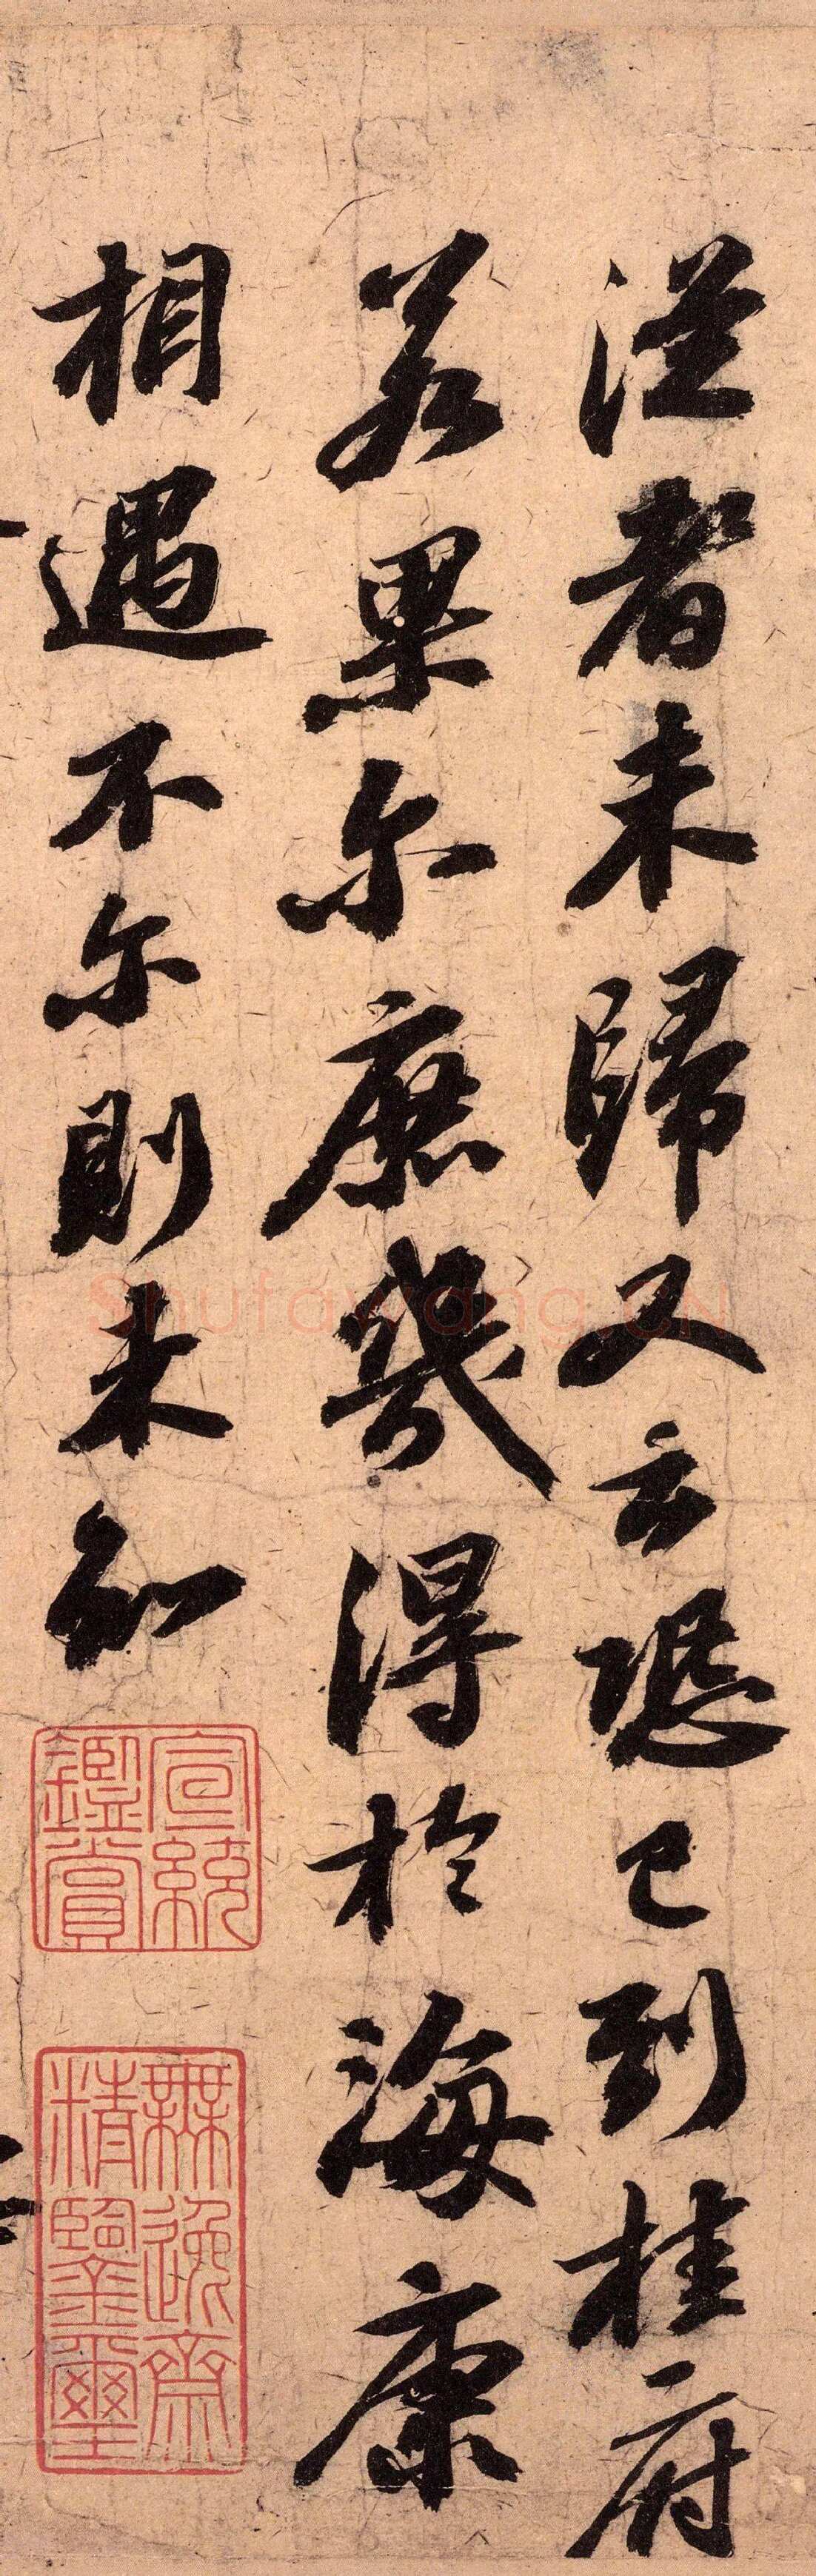 從者未歸又云恐已到桂府
若果尔庶幾得於海康
相遇不尔則未知
宣統
鑑賞
無逸齋
精鑒璽
Shufawang.CN